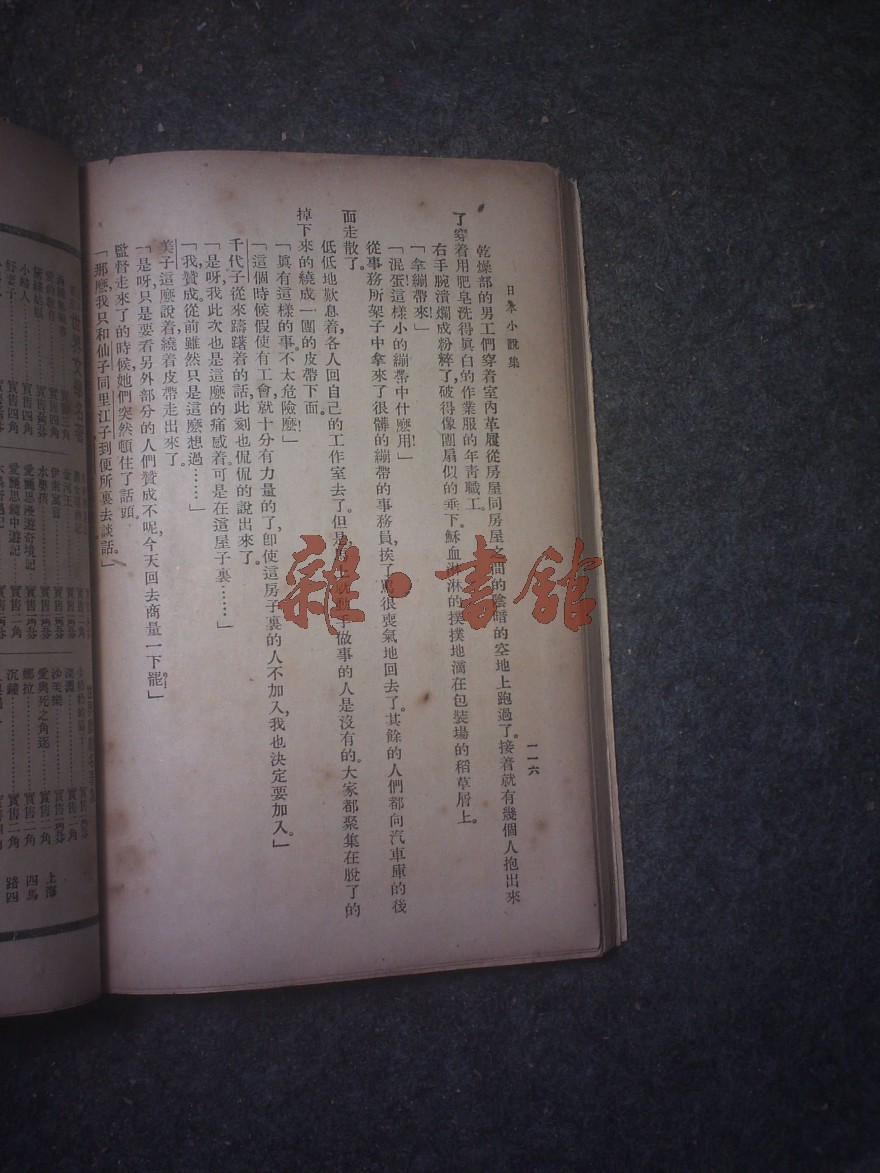 日本小說集
一一六
乾燥部的男工們穿着室內革履從房屋同房屋之間的陰暗的空地上跑過了。接着就有幾個人抱出來
了穿着用肥皂洗得眞白的作業服的年靑職工。
右手腕潰爛成粉粹了破得像團扇似的垂下。穌血淋淋的撲撲地滴在包裝場的稻草屑上。
「拿繃帶來!」
「混蛋!這樣小的繃帶中什麼用!」
從事務所架子中拿來了很髒的繃帶的事務員,挨了罵很喪氣地回去了。其餘的人們都向汽車庫的後
面走散了。
低低地歎息着,各人回自己的工作室去了。但是,馬上就動手做事的人是沒有的。大家都聚集在脫了的
掉下來的繞成一團的皮帶下面。
「眞有這樣的事。不太危險麼!」
「這個時候假使有工會,就十分有力量的了,卽使這房子裏的人不加入,我也決定要加入。」
千代子從來躊躇着的話,此刻也侃侃的說出來了。
「是呀,我此次也是這麼的痛感着。可是在這屋子裏……」
「我贊成。從前雖然只是這麼想過……」
美子這麼說着,繞着皮帶走出來了。
「是呀。只是要看另外部分的人們贊成不呢,今天回去商量一下罷」
監督走來了的時候,她們突然頓住了話頭。
「那麼我只和仙子同里江子到便所裏去談話。」
世界文學名著
小婦人
好妻子
實售四角
水嬰孩
愛麗思漫遊奇境記
愛麗思鏡中遊記
實售二角
沙美樂
愛與死之角逐
娜拉
沉鐘
實售二角
上海
四馬
路四
雜·書館